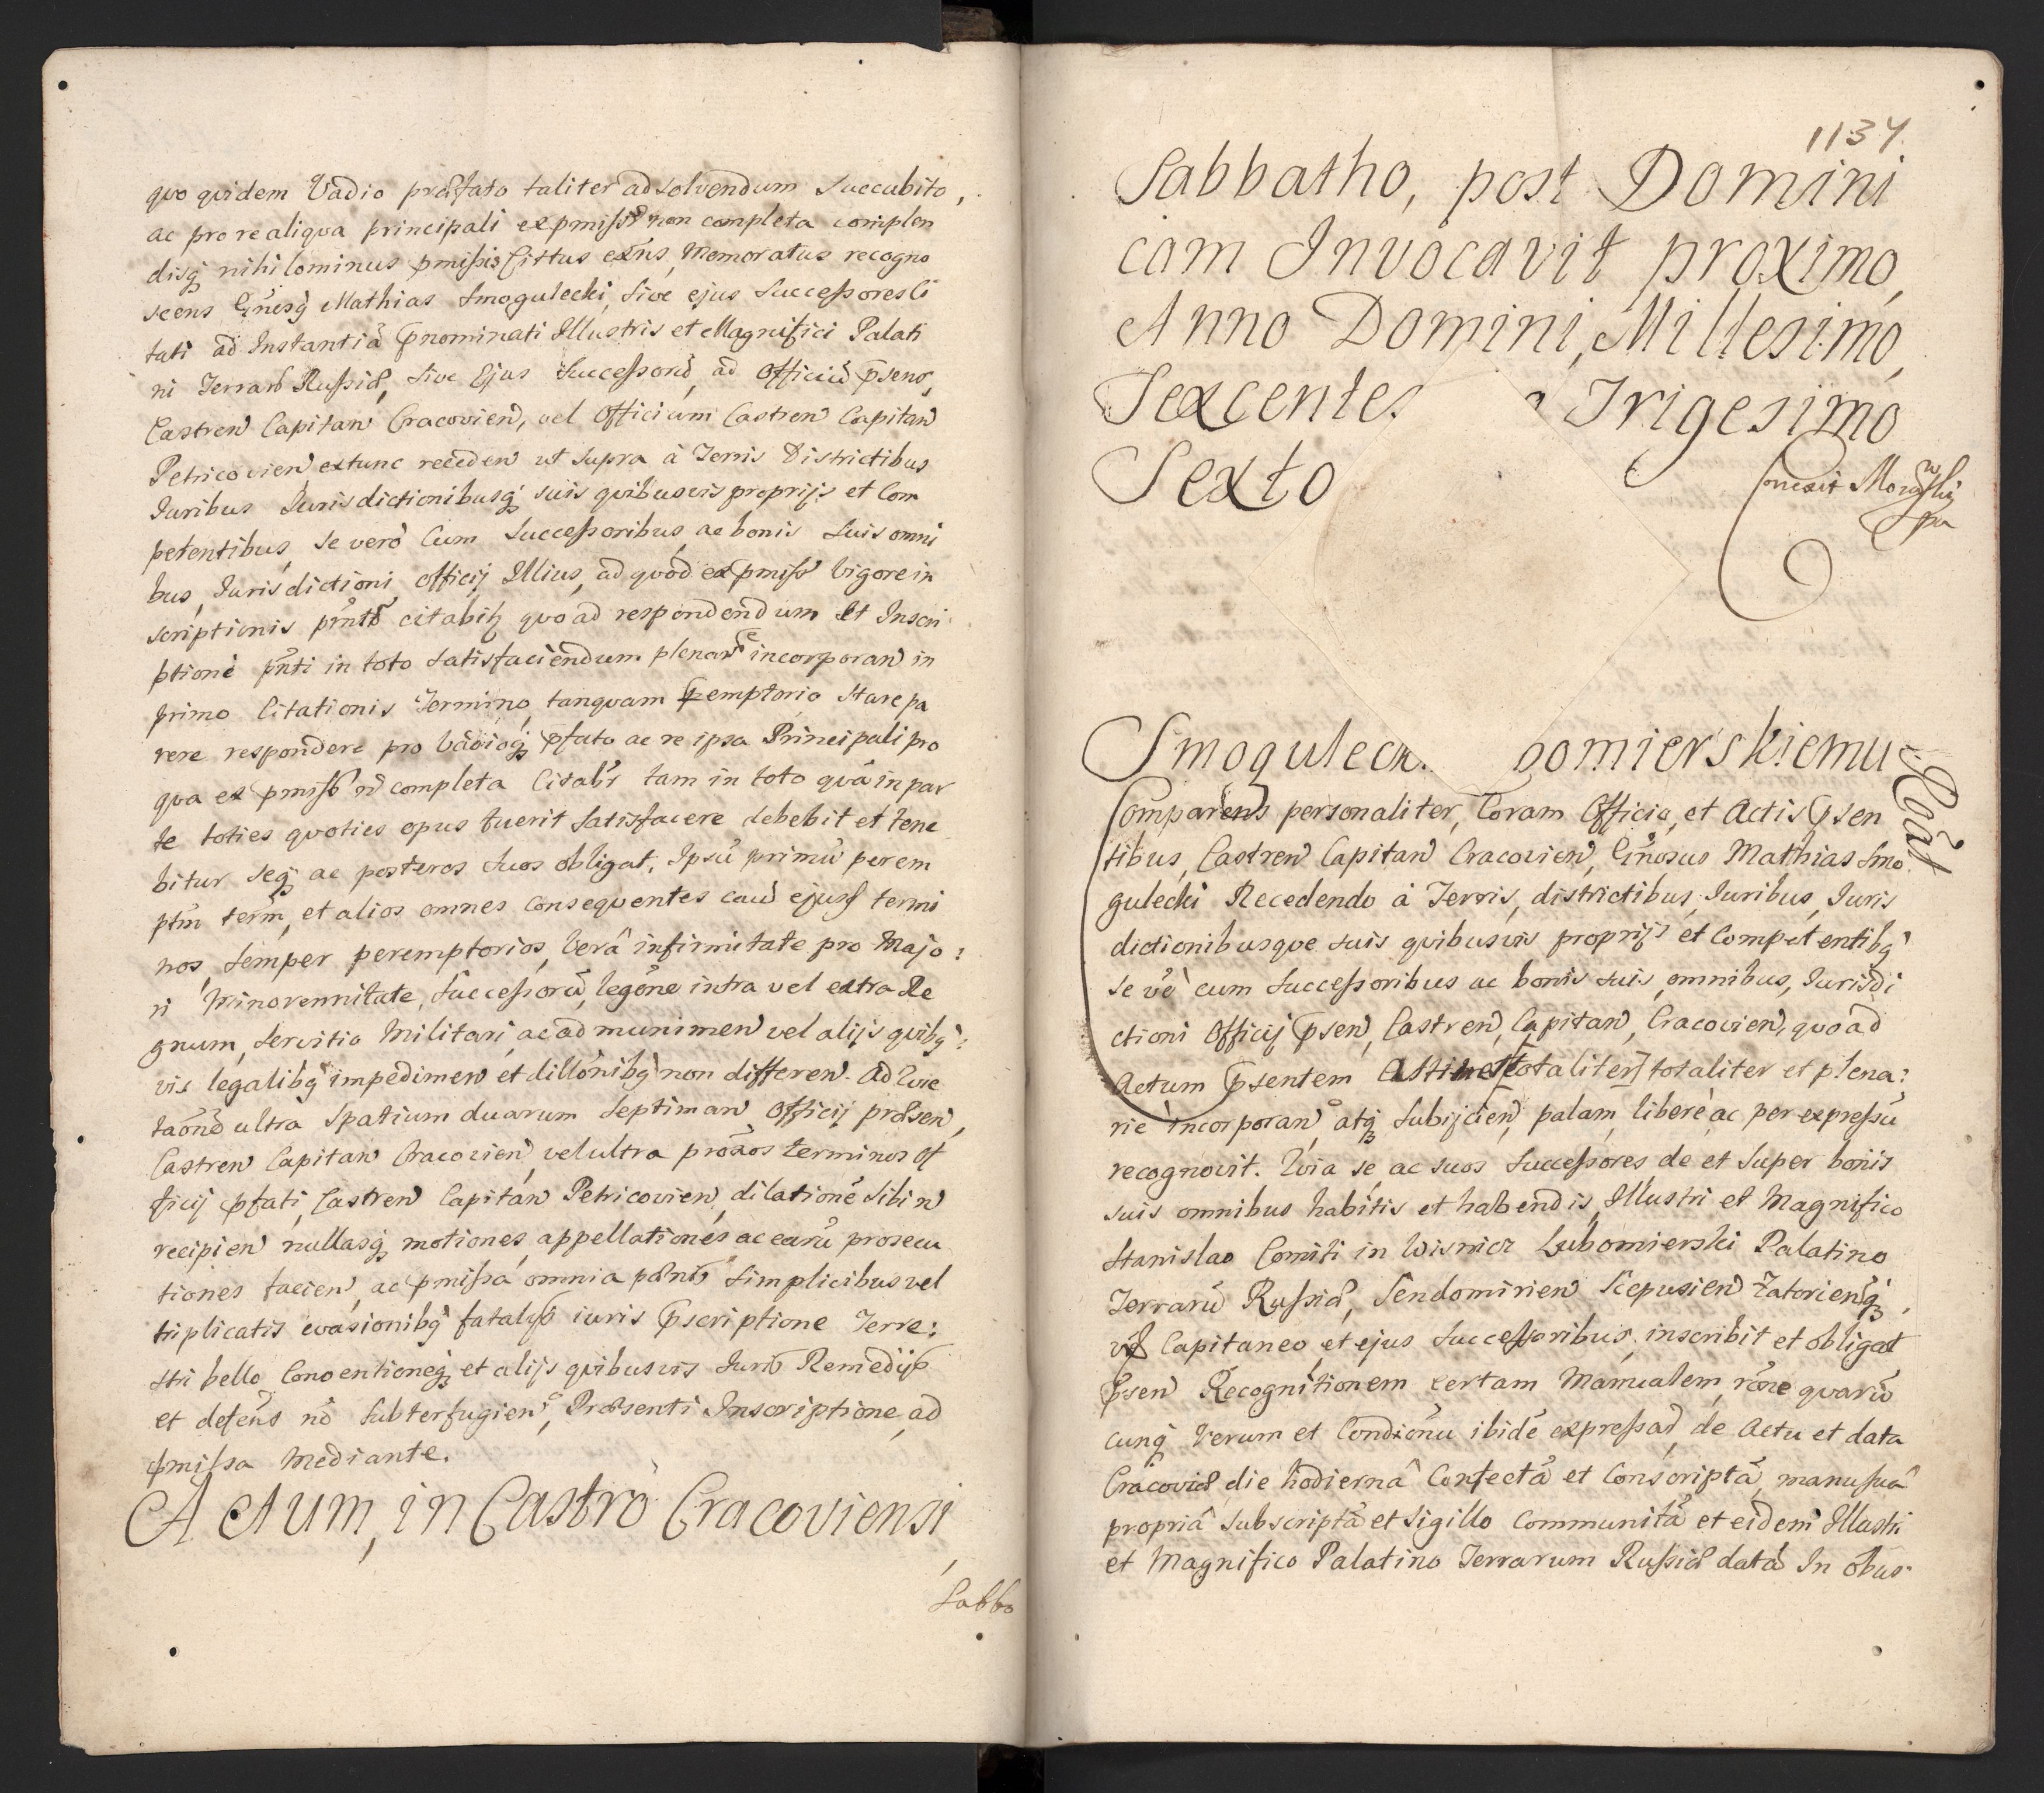 quo quidem Vadio præfato taliter ad solvendum succubito,
ac pro re aliqua principali ex pmissis non completa complen
disq nihilominus pmissis Cittus exns, Memoratus recogno
scens Gnusq Mathias Smogulecki, sive ejus Successores Ci
tati ad Instantiã pnominati Illustris et Magnifici Palati
ni Terrarũ Russiæ, sive Ejus Successorũ, ad Officiũ psens,
Castren Capitan Cracovien, vel Officium Castren Capitan
Petricovien extunc receden ut supra à Terris Districtibus
Iuribus Iurisdictionibusq suis quibusvis proprijs et Com
petentibus, se verò Cum Successoribus, ac bonis suis omni
bus, Iurisdictioni officij Illius, ad quod ex pmiss Vigore in
scriptionis pntis citabitz quo ad respondendum et Inscri
ptione pnti in toto satisfaciendum plenarie incorporan in
primo Citationis Termino, tanquam peremptorio stare pa
rere respondere pro Vadioq pfato ac re ipsa Principali pro
qua ex pmiss nõ completa Citabr tam in toto quã in par
te toties quoties opus fuerit satisfacere debebit et tene
bitur seq ac posteros suos obligat. Ipsũ primũ perem
ptm term, et alios omnes consequentes caus ejusd termi
nos, semper peremptorios, Verâ infirmitate pro Majo:
ri Minorennitate, Successorũ, legõne intra vel extra Re
gnum, servitio Militari, ac ad munimen vel alijs quibq:
vis legalibq impedimen et dillõnibq non differen. Ad Quie
taõnẽ ultra spatium duarum septiman Officij præsen,
Castren Capitan Cracovien, vel ultra proxõs terminos Of
ficij pfati, Castren Capitan Petricovien, dilationẽ sibi n
recipien nullasq motiones, appellationes ac earũ prosecu
tiones facien, ac pmissa omnia pænis simplicibus vel
triplicatis evasionibq fatalis iuris pscriptione Terre:
stri bello Conventioneq et alijs quibusvis Iuris Remedijs
et defens nõ subterfugien, Præsenti Inscriptione, ad
pmissa Mediante.
Actum, in Castro Cracoviensi,
Sabba
1137
Sabbatho, post Domini
cam Invocavit proximo,
Anno Domini, Millesimo,
Sexcentes Trigesimo
Sexto
Smogulecki omierskiemu
Comparens personaliter, Coram Officio, et Actis psen
tibus, Castren Capitan Cracovien, Gnosus Mathias Smo
gulecki Recedendo à Terris, districtibus, Iuribus, Iuris
dictionibusque suis quibusvis proprijs et Competentibq
se vẽ cum Successoribus ac bonis suis, omnibus, Iurisdi
ctioni Officij psen, Castren, Capitan, Cracovien, quo ad
Actum psentem totaliter totaliter et plena:
riè incorporan, atq subijcien, palam, liberè ac per expressũ
recognovit. Quia se, ac suos Successores de et super bonis
suis omnibus habitis et habendis, Illustri et Magnifico
Stanislao Comiti in Wisnicz Lubomierski Palatino
Terrarũ Russiæ, Sendomirien Scepusien Zatorienq,
Capitaneo, et ejus Successoribus, inscribit et obligat
psen Recognitionem certam Manualem, rõne quarũ
cunq rerum et Condiõnũ ibidẽ expressad, de Actu et data
Cracoviæ die hodiernâ Confectã et Conscriptã, manu suâ
propriâ subscriptã et Sigillo communitã et eidem Illustri
et Magnifico Palatino Terrarum Russiæ datã In õbus